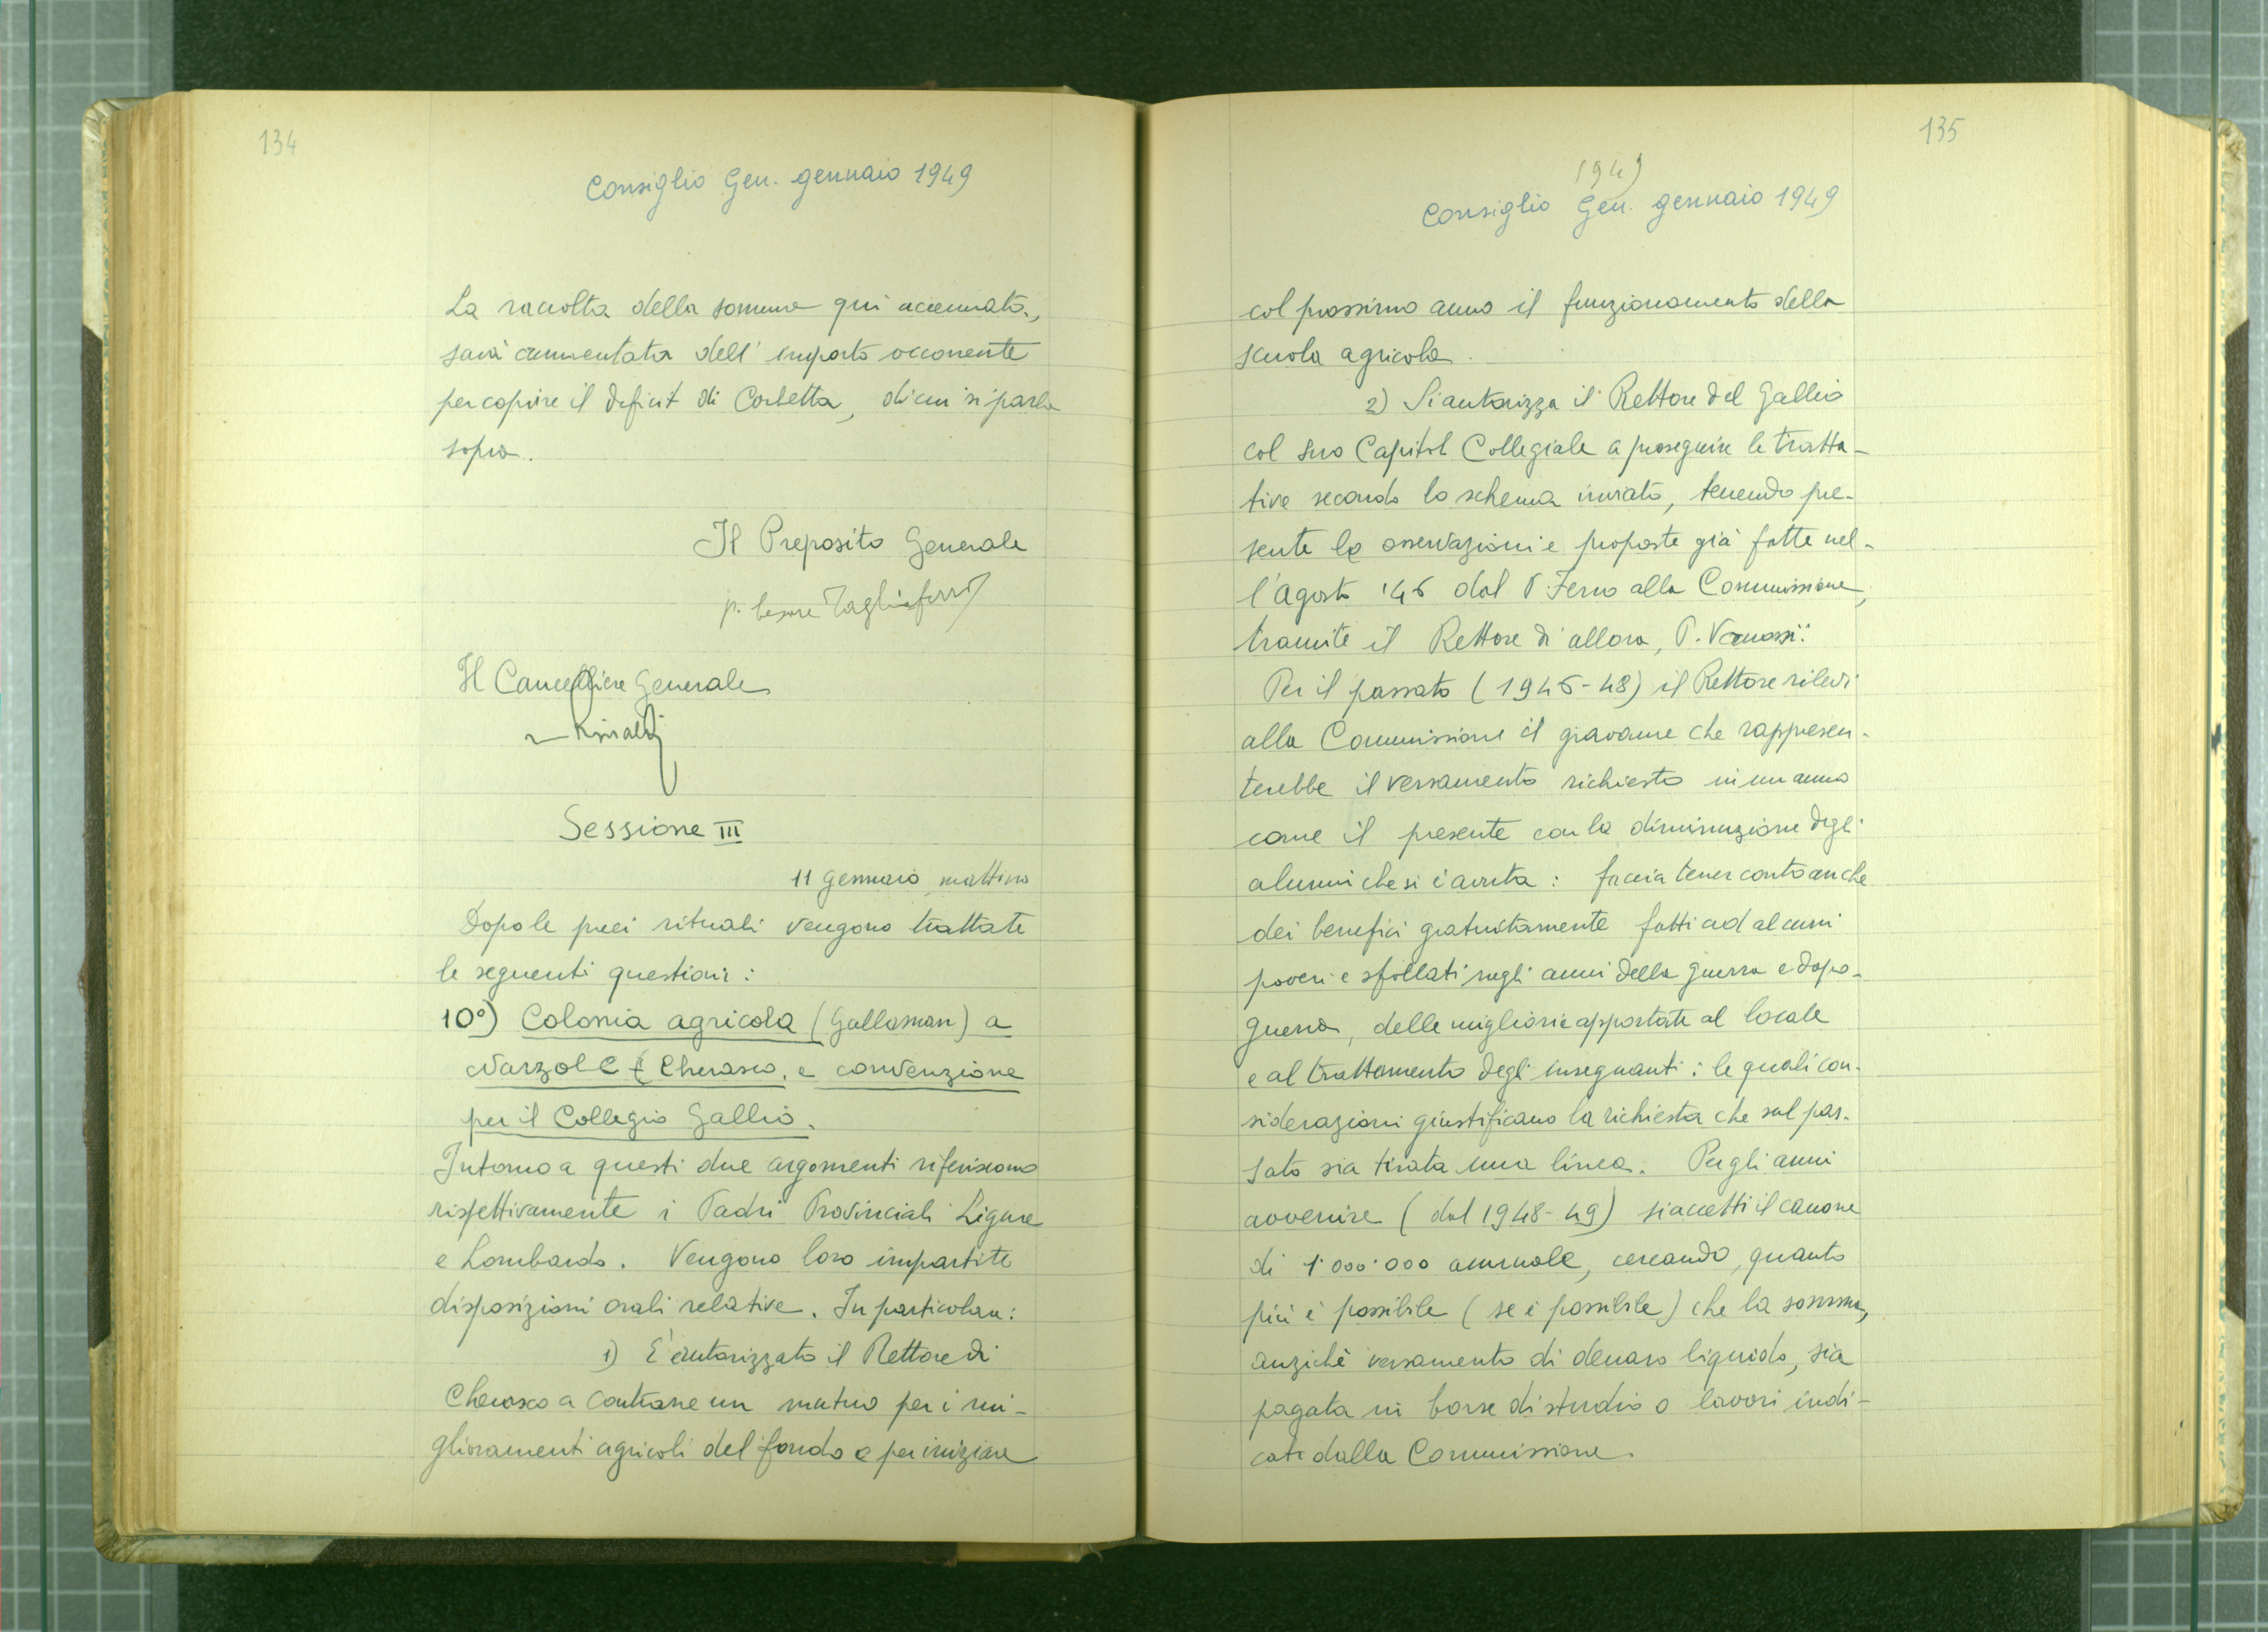 134
Consiglio Gen. gennaio 1949
La raccolta della somma qui accennata,
sarà aumentata dell'importo occorrente
per coprire il deficit di Corbetta, di cui si parla
sopra.
Il Preposito Generale
p. Cesare Tagliaferro
Il Cancelliere Generale
Rinaldi
Sessione III
11 gennaio mattino
Dopo le preci rituali vengono trattate
le seguenti questioni:
10°) Colonia agricola (Gallaman) a
Narzole (Cherasco, e convenzione
per il Collegio Gallio.
Intorno a questi due argomenti riferiscono
rispettivamente i Padri Provinciali Ligure
e Lombardo. Vengono loro impartite
disposizioni orali relative. In particolare:
1) E' autorizzato il Rettore di
Cherasco a contrarre un mutuo per i mi-
glioramenti agricoli del fondo e per iniziare
135
1949
Consiglio Gen. gennaio 1949
col prossimo anno il funzionamento della
scuola agricola.
2) Si autorizza il Rettore del Gallio
col suo Capitol Collegiale a proseguire le tratta-
tive secondo lo schema inviato, tenendo pre-
sente le osservazioni e proposte già fatte nel-
l'Agosto '46 dal P. Ferro alla Commissione,
tramite il Rettore di allora, P. Vanossi.
Per il passato (1946-48) il Rettore rilevi
alla Commissione il gravame che rappresen-
terebbe il versamento richiesto in un anno
come il presente con la diminuzione degli
alunni che si è avuta: faccia tener conto anche
dei benefici gratuitamente fatti ad alcuni
poveri e sfollati negli anni della guerra e dopo-
guerra, delle migliorie apportate al locale
e al trattamento degli insegnanti: le quali con-
siderazioni giustificano la richiesta che sul pas-
sato sia tirata una linea. Per gli anni
avvenire (dal 1948-49) si accetti il canone
di 1.000.000 annuale, cercando, quanto
più è possibile (se è possibile) che la somma,
anzichè versamento di denaro liquido, sia
pagata in borse di studio o lavori indi-
cati dalla Commissione.